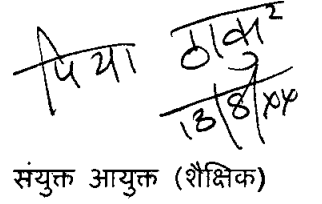 पिया ठाकुर
13/8/24
संयुक्त आयुक्त (शैक्षिक)